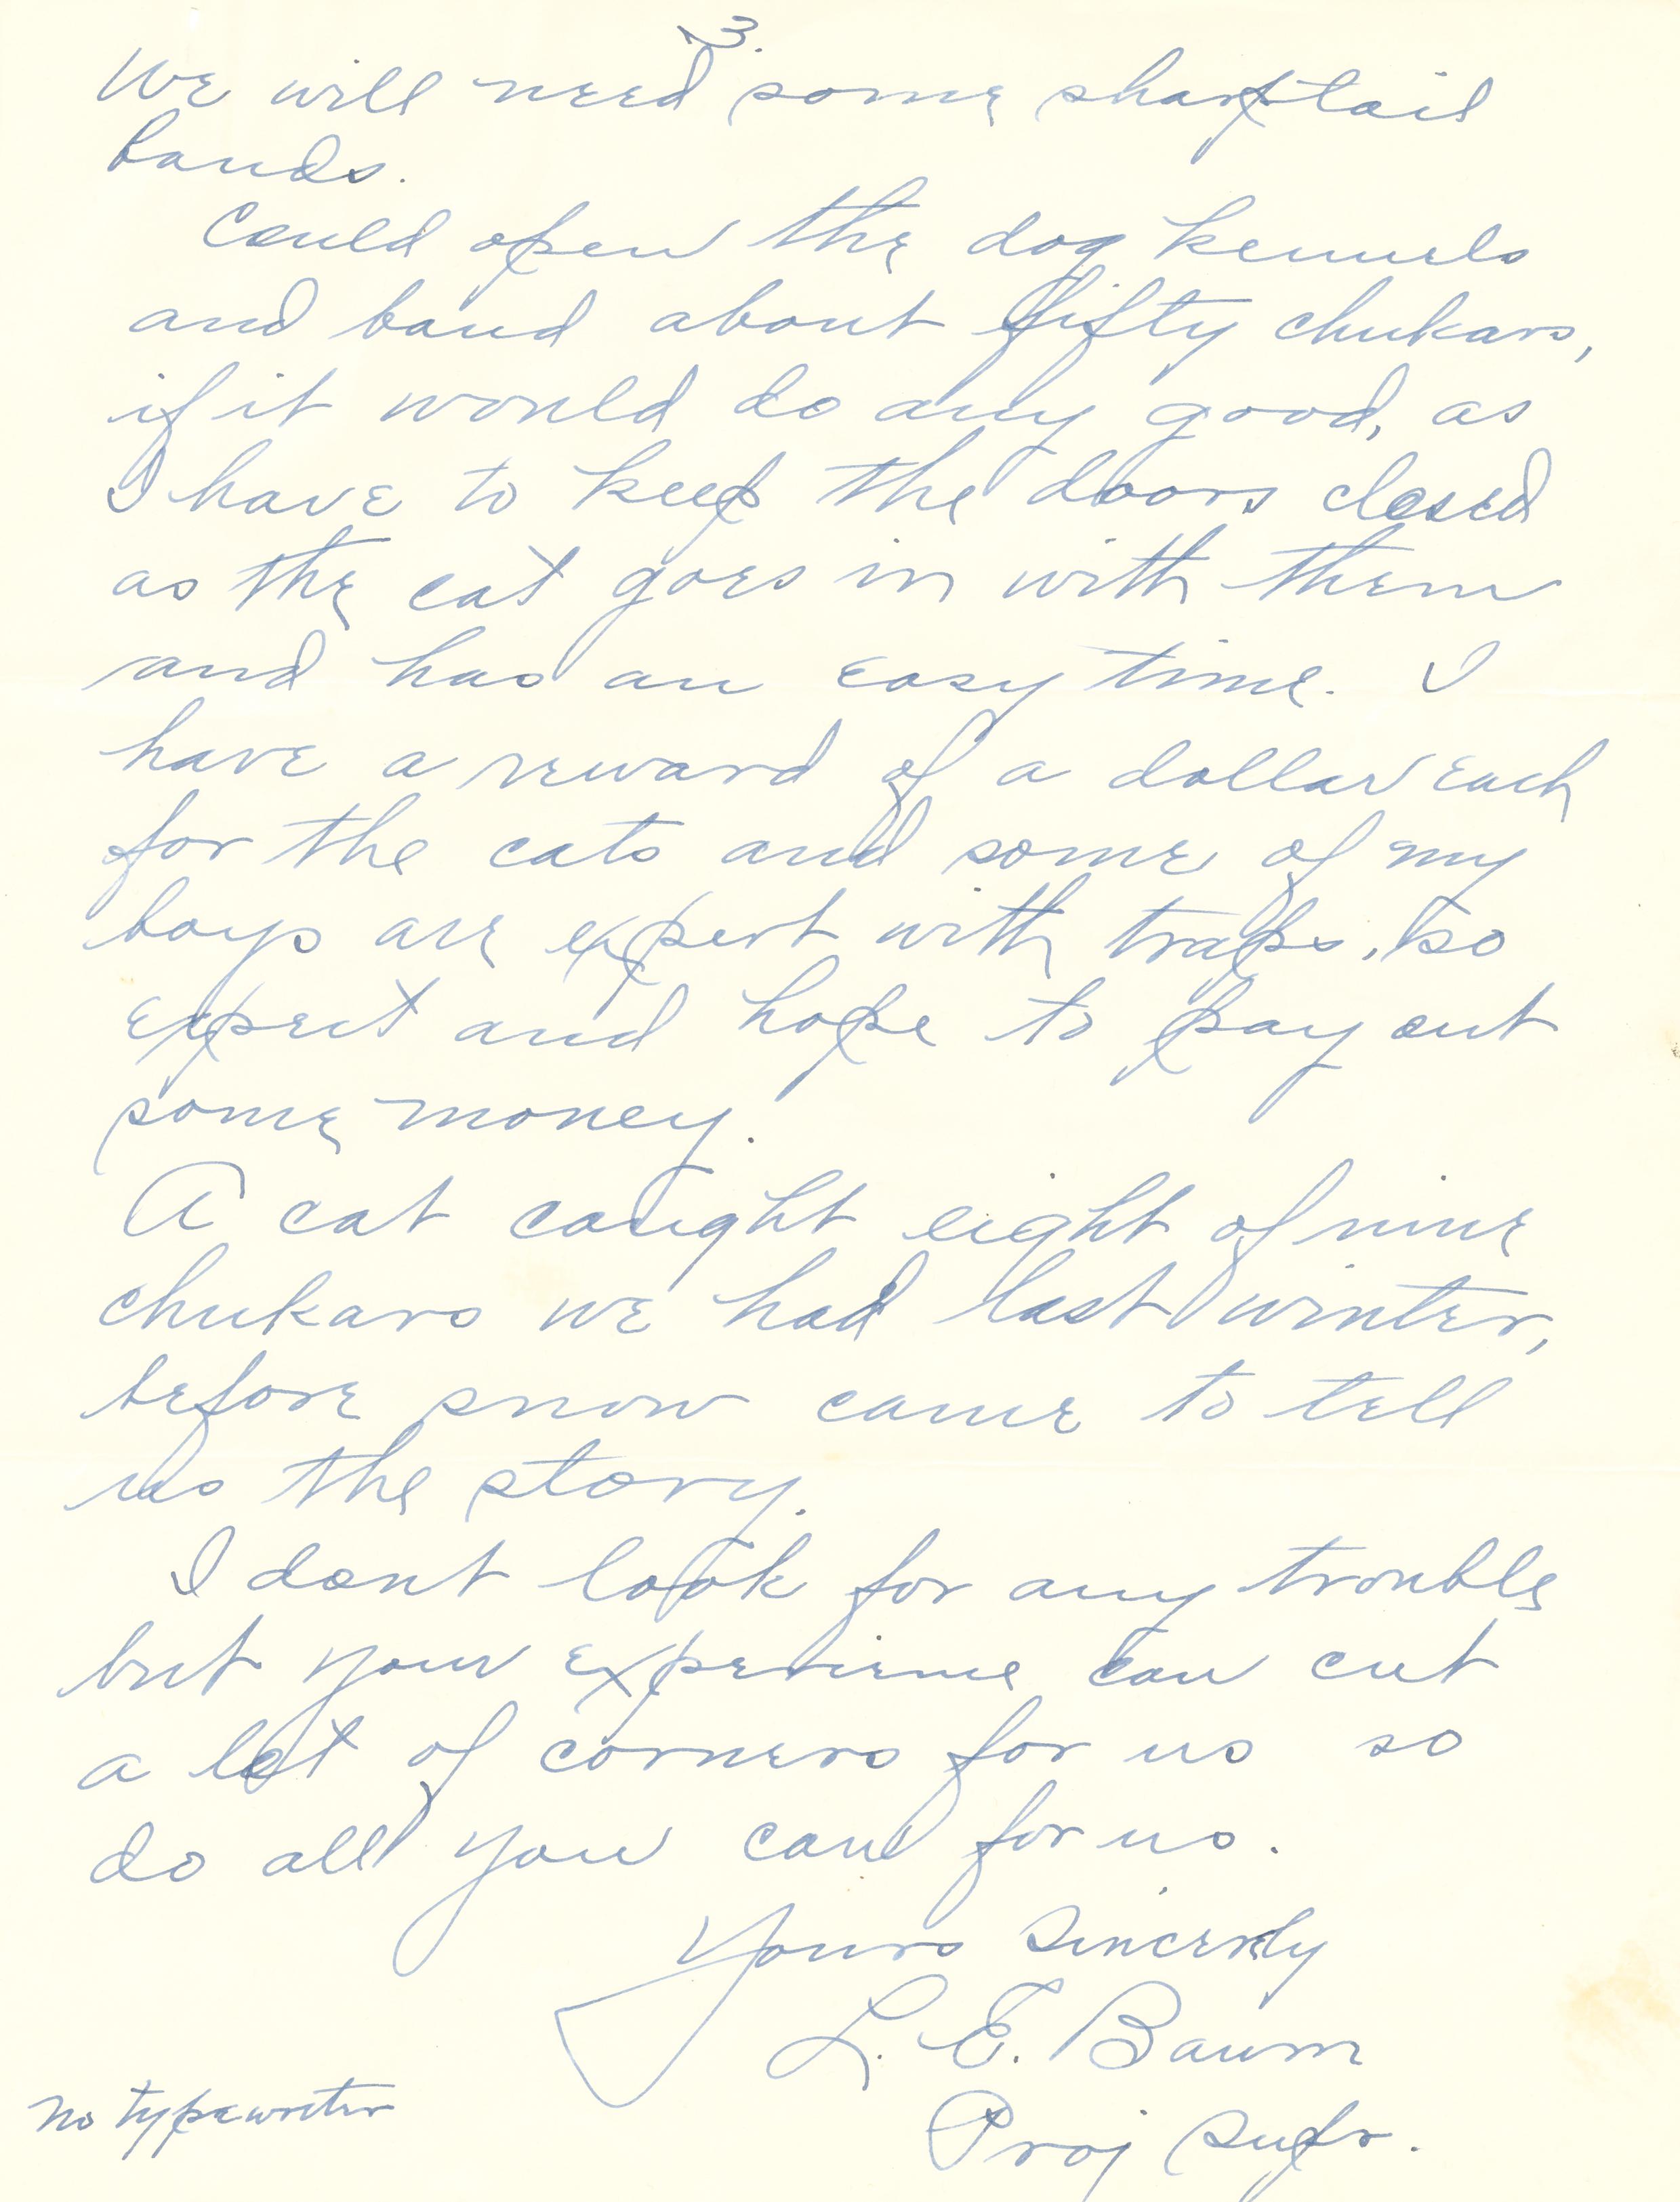 3.
We will need some sharptail
bands.
Could open the dog kennels
and band about fifty chukars,
if it would do any good, as
I have to keep the doors closed
as the cat goes in with them
and has an easy time. I
have a reward of a dollar each
for the cats and some of my
boys are expert with traps, so
expect and hope to pay out
some money.
A cat caught eight of nine
chukars we had last winter,
before snow came to tell
us the story.
I dont look for any trouble
but your experience can cut
a lot of corners for us so
do all you can for us.
Yours Sincerely
L. E. Baum
Proj Supr.
No typewriter